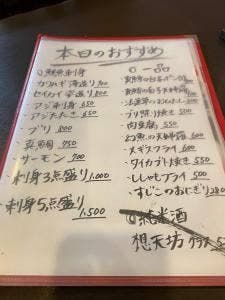 本日のおすすめ
◎鮮魚刺身
カワハギ薄造り 900
セイカイ 造り 800
アジ刺身 650
アジたたき 650
ブリ 800
真鯛 750
サーモン 700
刺身3点盛り 1.000
刺身5点盛り 1.500
◎一品
真鱈の白子ポン酢
真鱈の白子天ぷら
ブリ照り焼き 500
肉豆腐 550
幻魚の天ぷら 600
メギスフライ 600
タイカブト焼き 550
ししゃもフライ 500
すじこのおにぎり 280
◎純米酒
想天坊 グラス